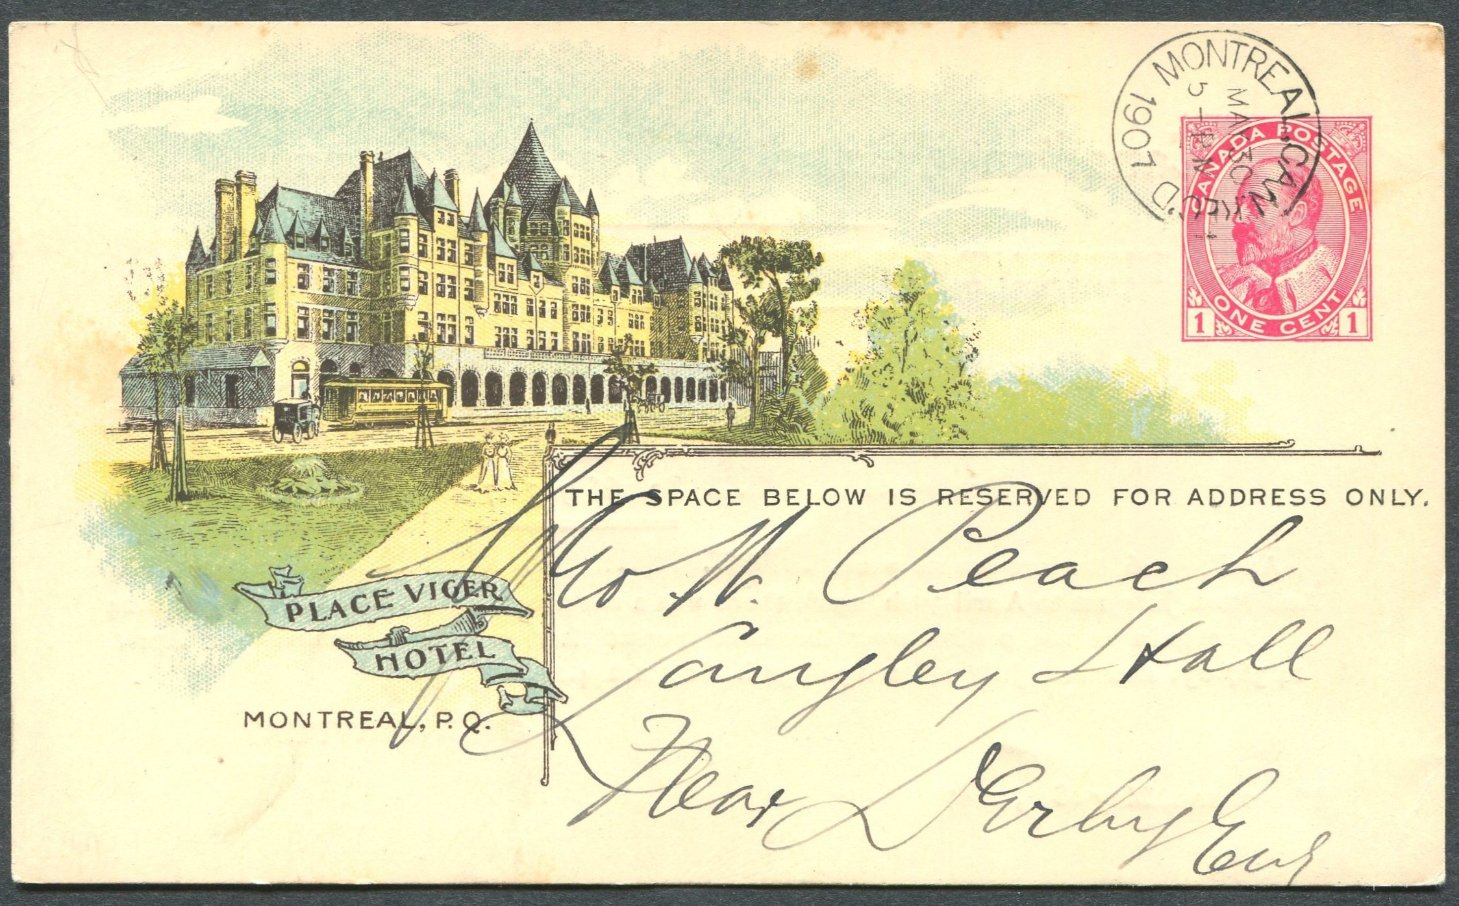 MONTREAL, CAN. REC'D
MAR 30
5 - PM
1907
CANADA POSTAGE
ONE CENT
1 1
THE SPACE BELOW IS RESERVED FOR ADDRESS ONLY.
W. Peach
Langley Hall
Near Derby Eng
PLACE VIGER
HOTEL
MONTREAL, P.Q.